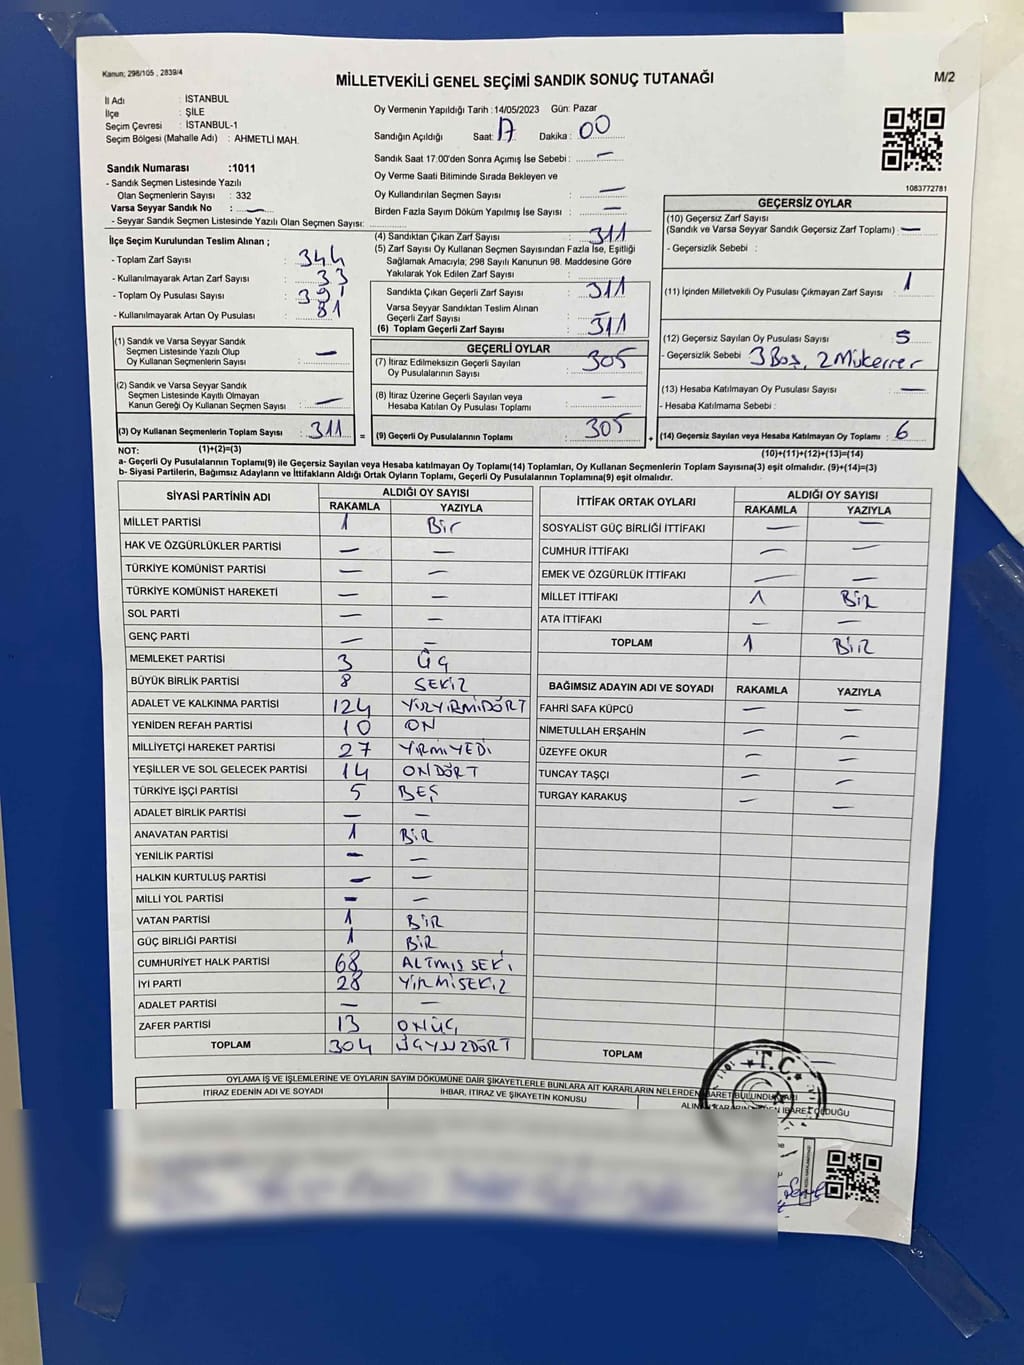 Kanun; 298/105 , 2839/4
MİLLETVEKİLİ GENEL SEÇİMİ SANDIK SONUÇ TUTANAĞI
M/2
İl Adı : İSTANBUL
İlçe : ŞİLE
Seçim Çevresi : İSTANBUL-1
Seçim Bölgesi (Mahalle Adı) : AHMETLİ MAH.
Oy Vermenin Yapıldığı Tarih : 14/05/2023 Gün: Pazar
Sandığın Açıldığı Saat: 17 Dakika : 00
Sandık Saat 17:00'den Sonra Açımış İse Sebebi : —
Oy Verme Saati Bitiminde Sırada Bekleyen ve
Oy Kullandırılan Seçmen Sayısı : —
Birden Fazla Sayım Döküm Yapılmış İse Sayısı : —
1083772781
Sandık Numarası :1011
- Sandık Seçmen Listesinde Yazılı
Olan Seçmenlerin Sayısı : 332
Varsa Seyyar Sandık No : —
- Seyyar Sandık Seçmen Listesinde Yazılı Olan Seçmen Sayısı:
İlçe Seçim Kurulundan Teslim Alınan ;
- Toplam Zarf Sayısı : 344
- Kullanılmayarak Artan Zarf Sayısı : 33
- Toplam Oy Pusulası Sayısı :
- Kullanılmayarak Artan Oy Pusulası : 81
(1) Sandık ve Varsa Seyyar Sandık
Seçmen Listesinde Yazılı Olup
Oy Kullanan Seçmenlerin Sayısı : —
(2) Sandık ve Varsa Seyyar Sandık
Seçmen Listesinde Kayıtlı Olmayan
Kanun Gereği Oy Kullanan Seçmen Sayısı : —
(3) Oy Kullanan Seçmenlerin Toplam Sayısı : 311 =
(4) Sandıktan Çıkan Zarf Sayısı : 311
(5) Zarf Sayısı Oy Kullanan Seçmen Sayısından Fazla İse, Eşitliği
Sağlamak Amacıyla; 298 Sayılı Kanunun 98. Maddesine Göre
Yakılarak Yok Edilen Zarf Sayısı :
Sandıkta Çıkan Geçerli Zarf Sayısı : 311
Varsa Seyyar Sandıktan Teslim Alınan
Geçerli Zarf Sayısı : —
(6) Toplam Geçerli Zarf Sayısı : 311
GEÇERLİ OYLAR
(7) İtiraz Edilmeksizin Geçerli Sayılan
Oy Pusulalarının Sayısı : 305
(8) İtiraz Üzerine Geçerli Sayılan veya
Hesaba Katılan Oy Pusulası Toplamı : —
(9) Geçerli Oy Pusulalarının Toplamı : 305 +
GEÇERSİZ OYLAR
(10) Geçersiz Zarf Sayısı
(Sandık ve Varsa Seyyar Sandık Geçersiz Zarf Toplamı) : —
- Geçersizlik Sebebi :
(11) İçinden Milletvekili Oy Pusulası Çıkmayan Zarf Sayısı : 1
(12) Geçersiz Sayılan Oy Pusulası Sayısı : 5
- Geçersizlik Sebebi : 3 Boş, 2 Mükerrer
(13) Hesaba Katılmayan Oy Pusulası Sayısı : —
- Hesaba Katılmama Sebebi :
(14) Geçersiz Sayılan veya Hesaba Katılmayan Oy Toplamı : 6
NOT: (1)+(2)=(3) (10)+(11)+(12)+(13)=(14)
a- Geçerli Oy Pusulalarının Toplamı(9) ile Geçersiz Sayılan veya Hesaba katılmayan Oy Toplamı(14) Toplamları, Oy Kullanan Seçmenlerin Toplam Sayısına(3) eşit olmalıdır. (9)+(14)=(3)
b- Siyasi Partilerin, Bağımsız Adayların ve İttifakların Aldığı Ortak Oyların Toplamı, Geçerli Oy Pusulalarının Toplamına(9) eşit olmalıdır.
SİYASİ PARTİNİN ADI ALDIĞI OY SAYISI
RAKAMLA YAZIYLA
MİLLET PARTİSİ 1 Bir
HAK VE ÖZGÜRLÜKLER PARTİSİ — —
TÜRKİYE KOMÜNİST PARTİSİ — —
TÜRKİYE KOMÜNİST HAREKETİ — —
SOL PARTİ — —
GENÇ PARTİ — —
MEMLEKET PARTİSİ 3 ÜÇ
BÜYÜK BİRLİK PARTİSİ 8 SEKİZ
ADALET VE KALKINMA PARTİSİ 124 YÜZYİRMİDÖRT
YENİDEN REFAH PARTİSİ 10 ON
MİLLİYETÇİ HAREKET PARTİSİ 27 YİRMİYEDİ
YEŞİLLER VE SOL GELECEK PARTİSİ 14 ONDÖRT
TÜRKİYE İŞÇİ PARTİSİ 5 BEŞ
ADALET BİRLİK PARTİSİ — —
ANAVATAN PARTİSİ 1 BİR
YENİLİK PARTİSİ — —
HALKIN KURTULUŞ PARTİSİ — —
MİLLİ YOL PARTİSİ — —
VATAN PARTİSİ 1 BİR
GÜÇ BİRLİĞİ PARTİSİ 1 BİR
CUMHURİYET HALK PARTİSİ 68 ALTMIŞ SEKİ
İYİ PARTİ 28 YİRMİSEKİZ
ADALET PARTİSİ — —
ZAFER PARTİSİ 13 ONÜÇ
TOPLAM 304 ÜÇYÜZDÖRT
İTTİFAK ORTAK OYLARI ALDIĞI OY SAYISI
RAKAMLA YAZIYLA
SOSYALİST GÜÇ BİRLİĞİ İTTİFAKI — —
CUMHUR İTTİFAKI — —
EMEK VE ÖZGÜRLÜK İTTİFAKI — —
MİLLET İTTİFAKI 1 BİR
ATA İTTİFAKI — —
TOPLAM 1 BİR
BAĞIMSIZ ADAYIN ADI VE SOYADI RAKAMLA YAZIYLA
FAHRİ SAFA KÜPCÜ — —
NİMETULLAH ERŞAHİN — —
ÜZEYFE OKUR — —
TUNCAY TAŞÇI — —
TURGAY KARAKUŞ — —
TOPLAM
T.C.
OYLAMA İŞ VE İŞLEMLERİNE VE OYLARIN SAYIM DÖKÜMÜNE DAİR ŞİKAYETLERLE BUNLARA AİT KARARLARIN NELERDEN İBARET BULUNDUKLARI
İTİRAZ EDENİN ADI VE SOYADI İHBAR, İTİRAZ VE ŞİKAYETİN KONUSU ALINAN KARARIN NEDEN İBARET OLDUĞU